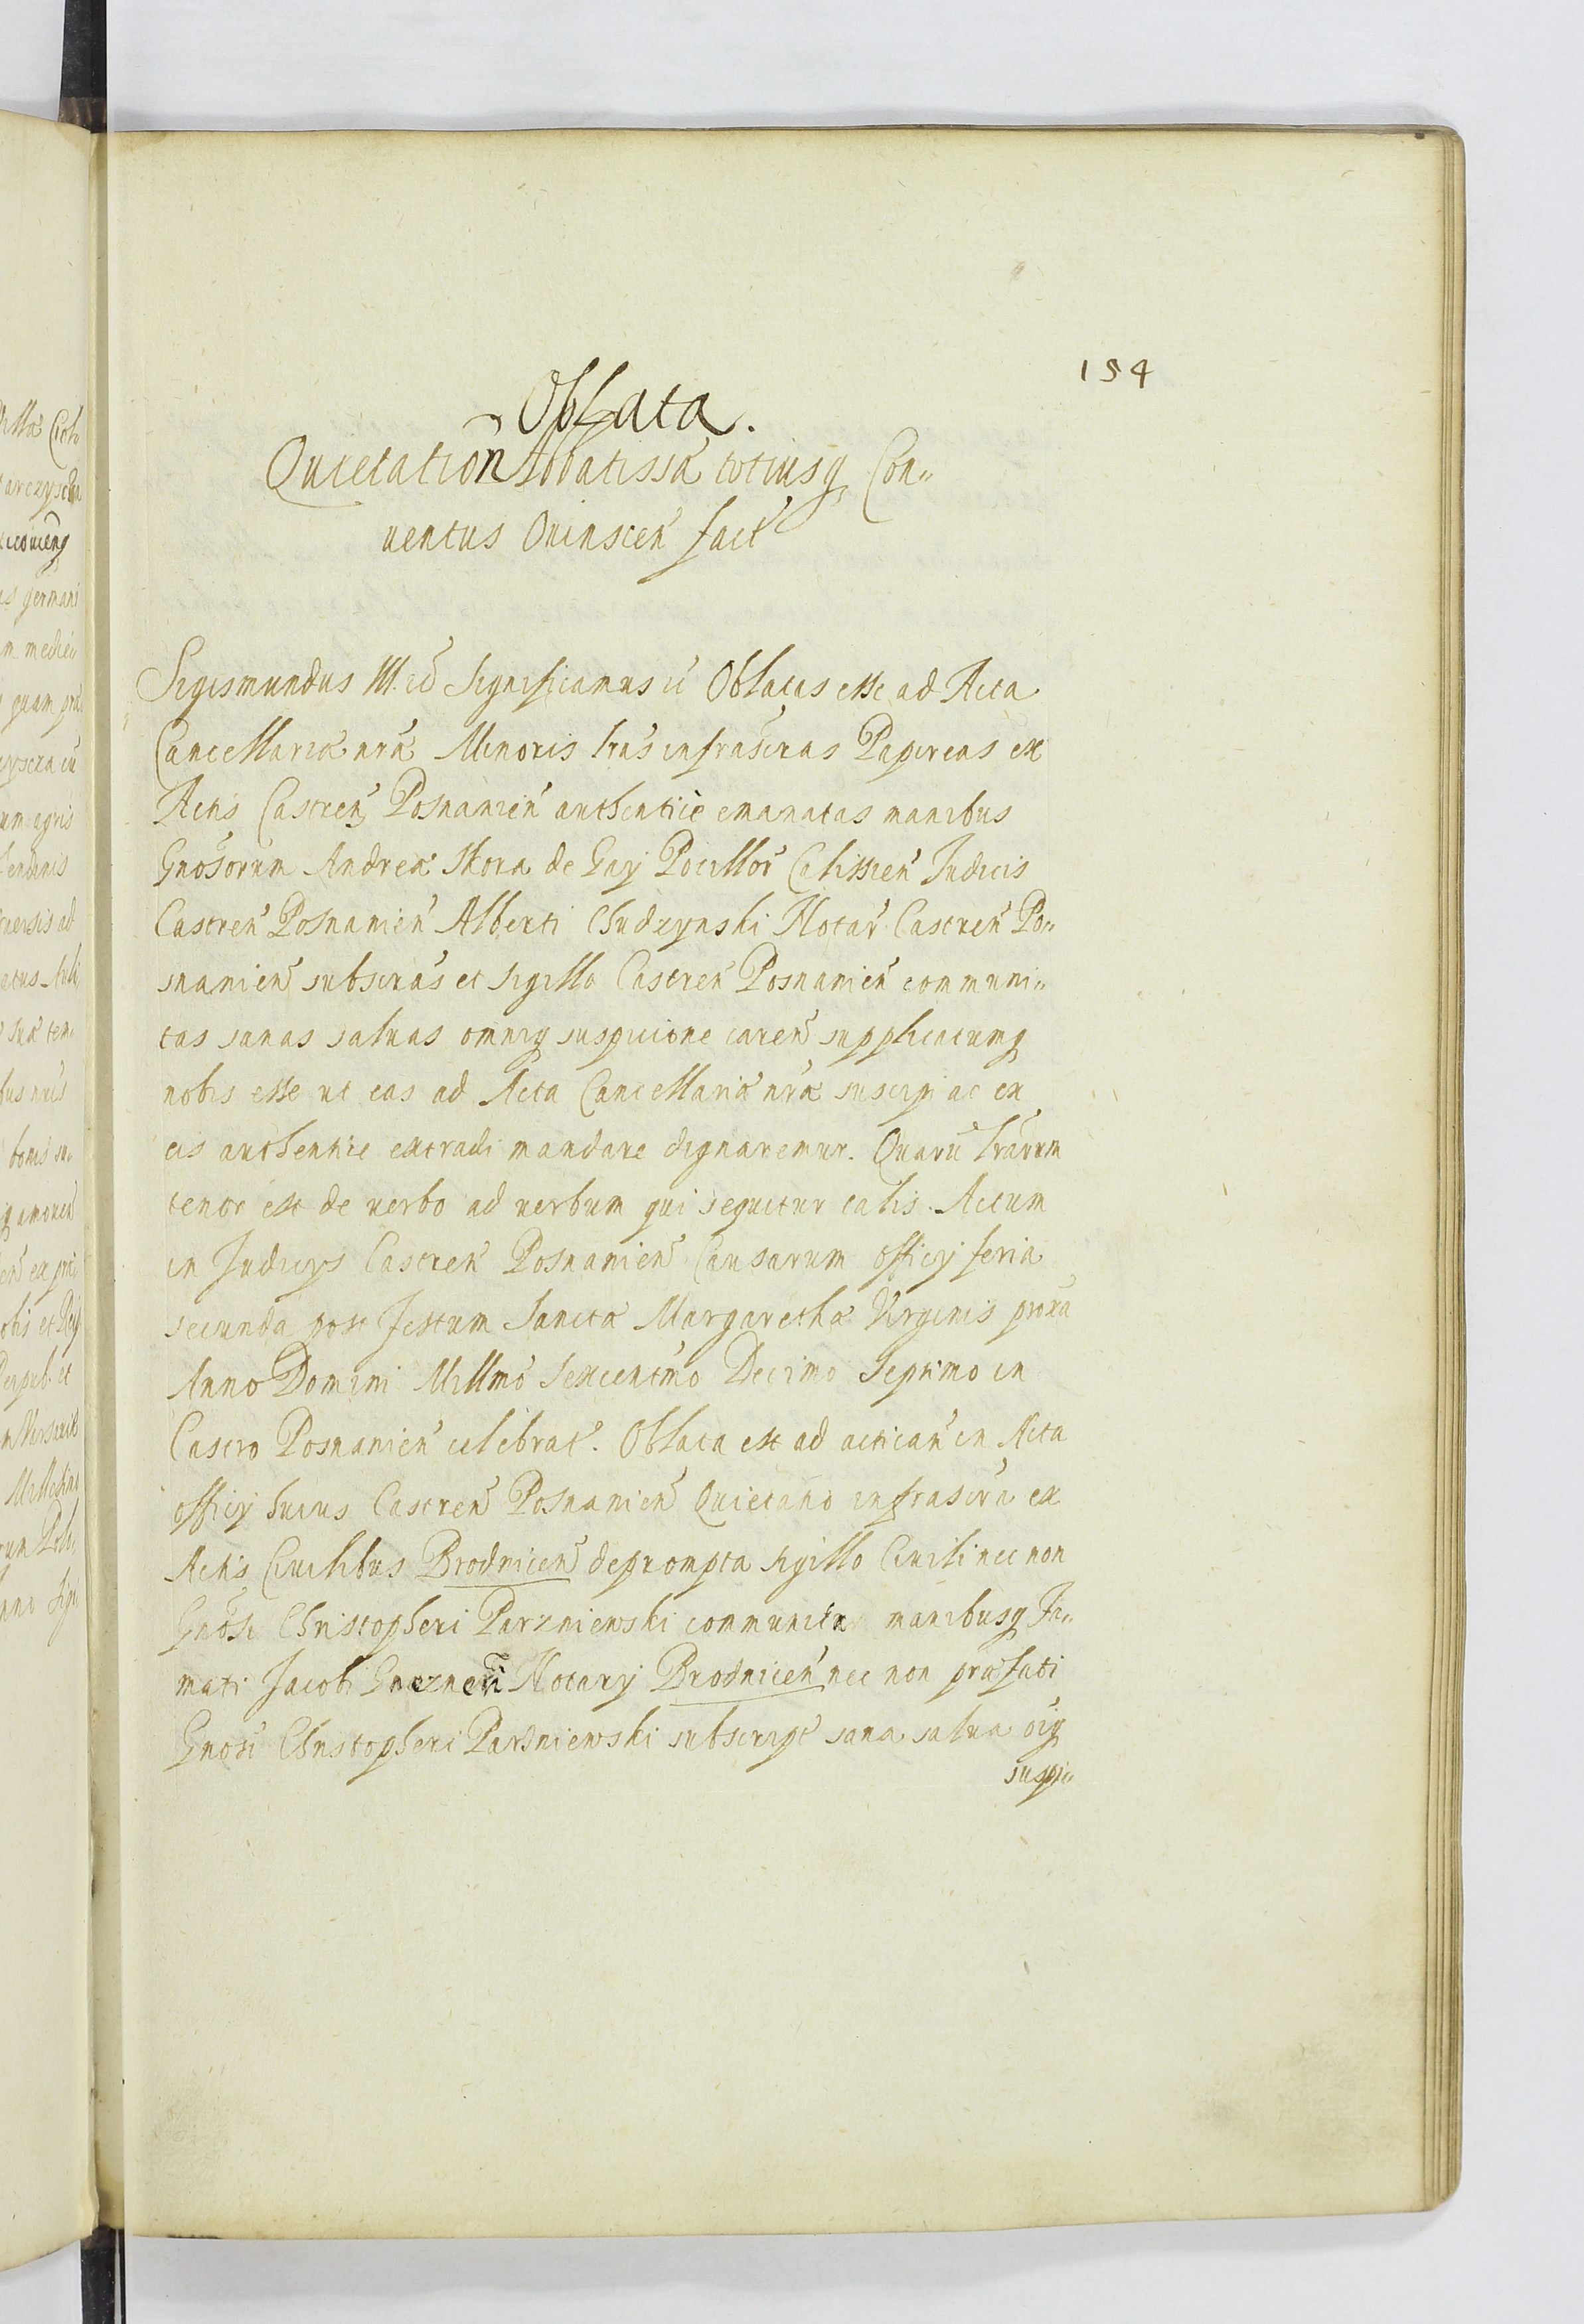 154
Oblata.
Quietation Abbatissæ totiusq Con„
uentus Ouinscen̄ fact̄
Sigismundus III. etc̄ Significamus etc̄ Oblatas esse ad Acta
Cancellariæ nr̄æ Minoris lr̄as infrascr̄as Papireas ex
Actis Castren̄ Posnanien̄ authentice emanatas manibus
Gn̄osorum Andreæ Skora de Gay Pocillor̄ Calissien̄ Judicis
Castren̄ Posnanien̄ Alberti Chudzynski Notar̄ Castren̄ Po„
snanien̄ subscr̄as et sigillo Castren̄ Posnanien̄ communi„
tas sanas saluas omniq suspicione caren̄ supplicatumq
nobis esse ut eas ad Acta Cancellariæ nr̄æ suscipi ac ex
eis authentice extradi mandare dignaremur. Quarū lr̄arum
tenor est de uerbo ad uerbum qui sequitur talis. Actum
in Judicys Castren̄ Posnanien̄ Causarum officy feria
secunda post festum Sanctæ Margarethæ Virginis prox̄a
Anno Domini Mill̄mo Sexcentm̄o Decimo Septimo in
Castro Posnanien̄ celebrat̄. Oblata est ad actican̄ in Acta
officy huius Castren̄ Posnanien̄ Quietatio infrascr̄a ex
Actis Ciuilibus Brodnicen̄ deprompta sigillo Ciuili nec non
Gn̄osi Christopheri Parzniewski communita manibusq Fa„
mati Jacobi Notary Brodnicen̄ nec non præfati
Gn̄osi Christopheri Parzniewski subscript̄ sana salua oīq
suspi„